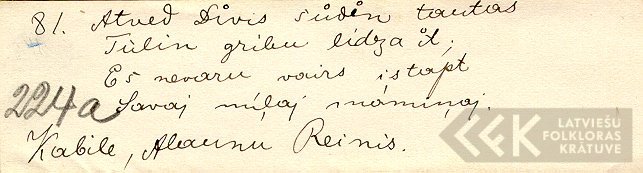 81. Atved Dìvis sùdin tautas
Tùlin gribu lidza ìt;
Es nevaru vairs istapt
224a Savaj mìļaj màmiņaj.
Kabile, Alaunu Reinis.
LATVIEŠU
FOLKLORAS
KRĀTUVE